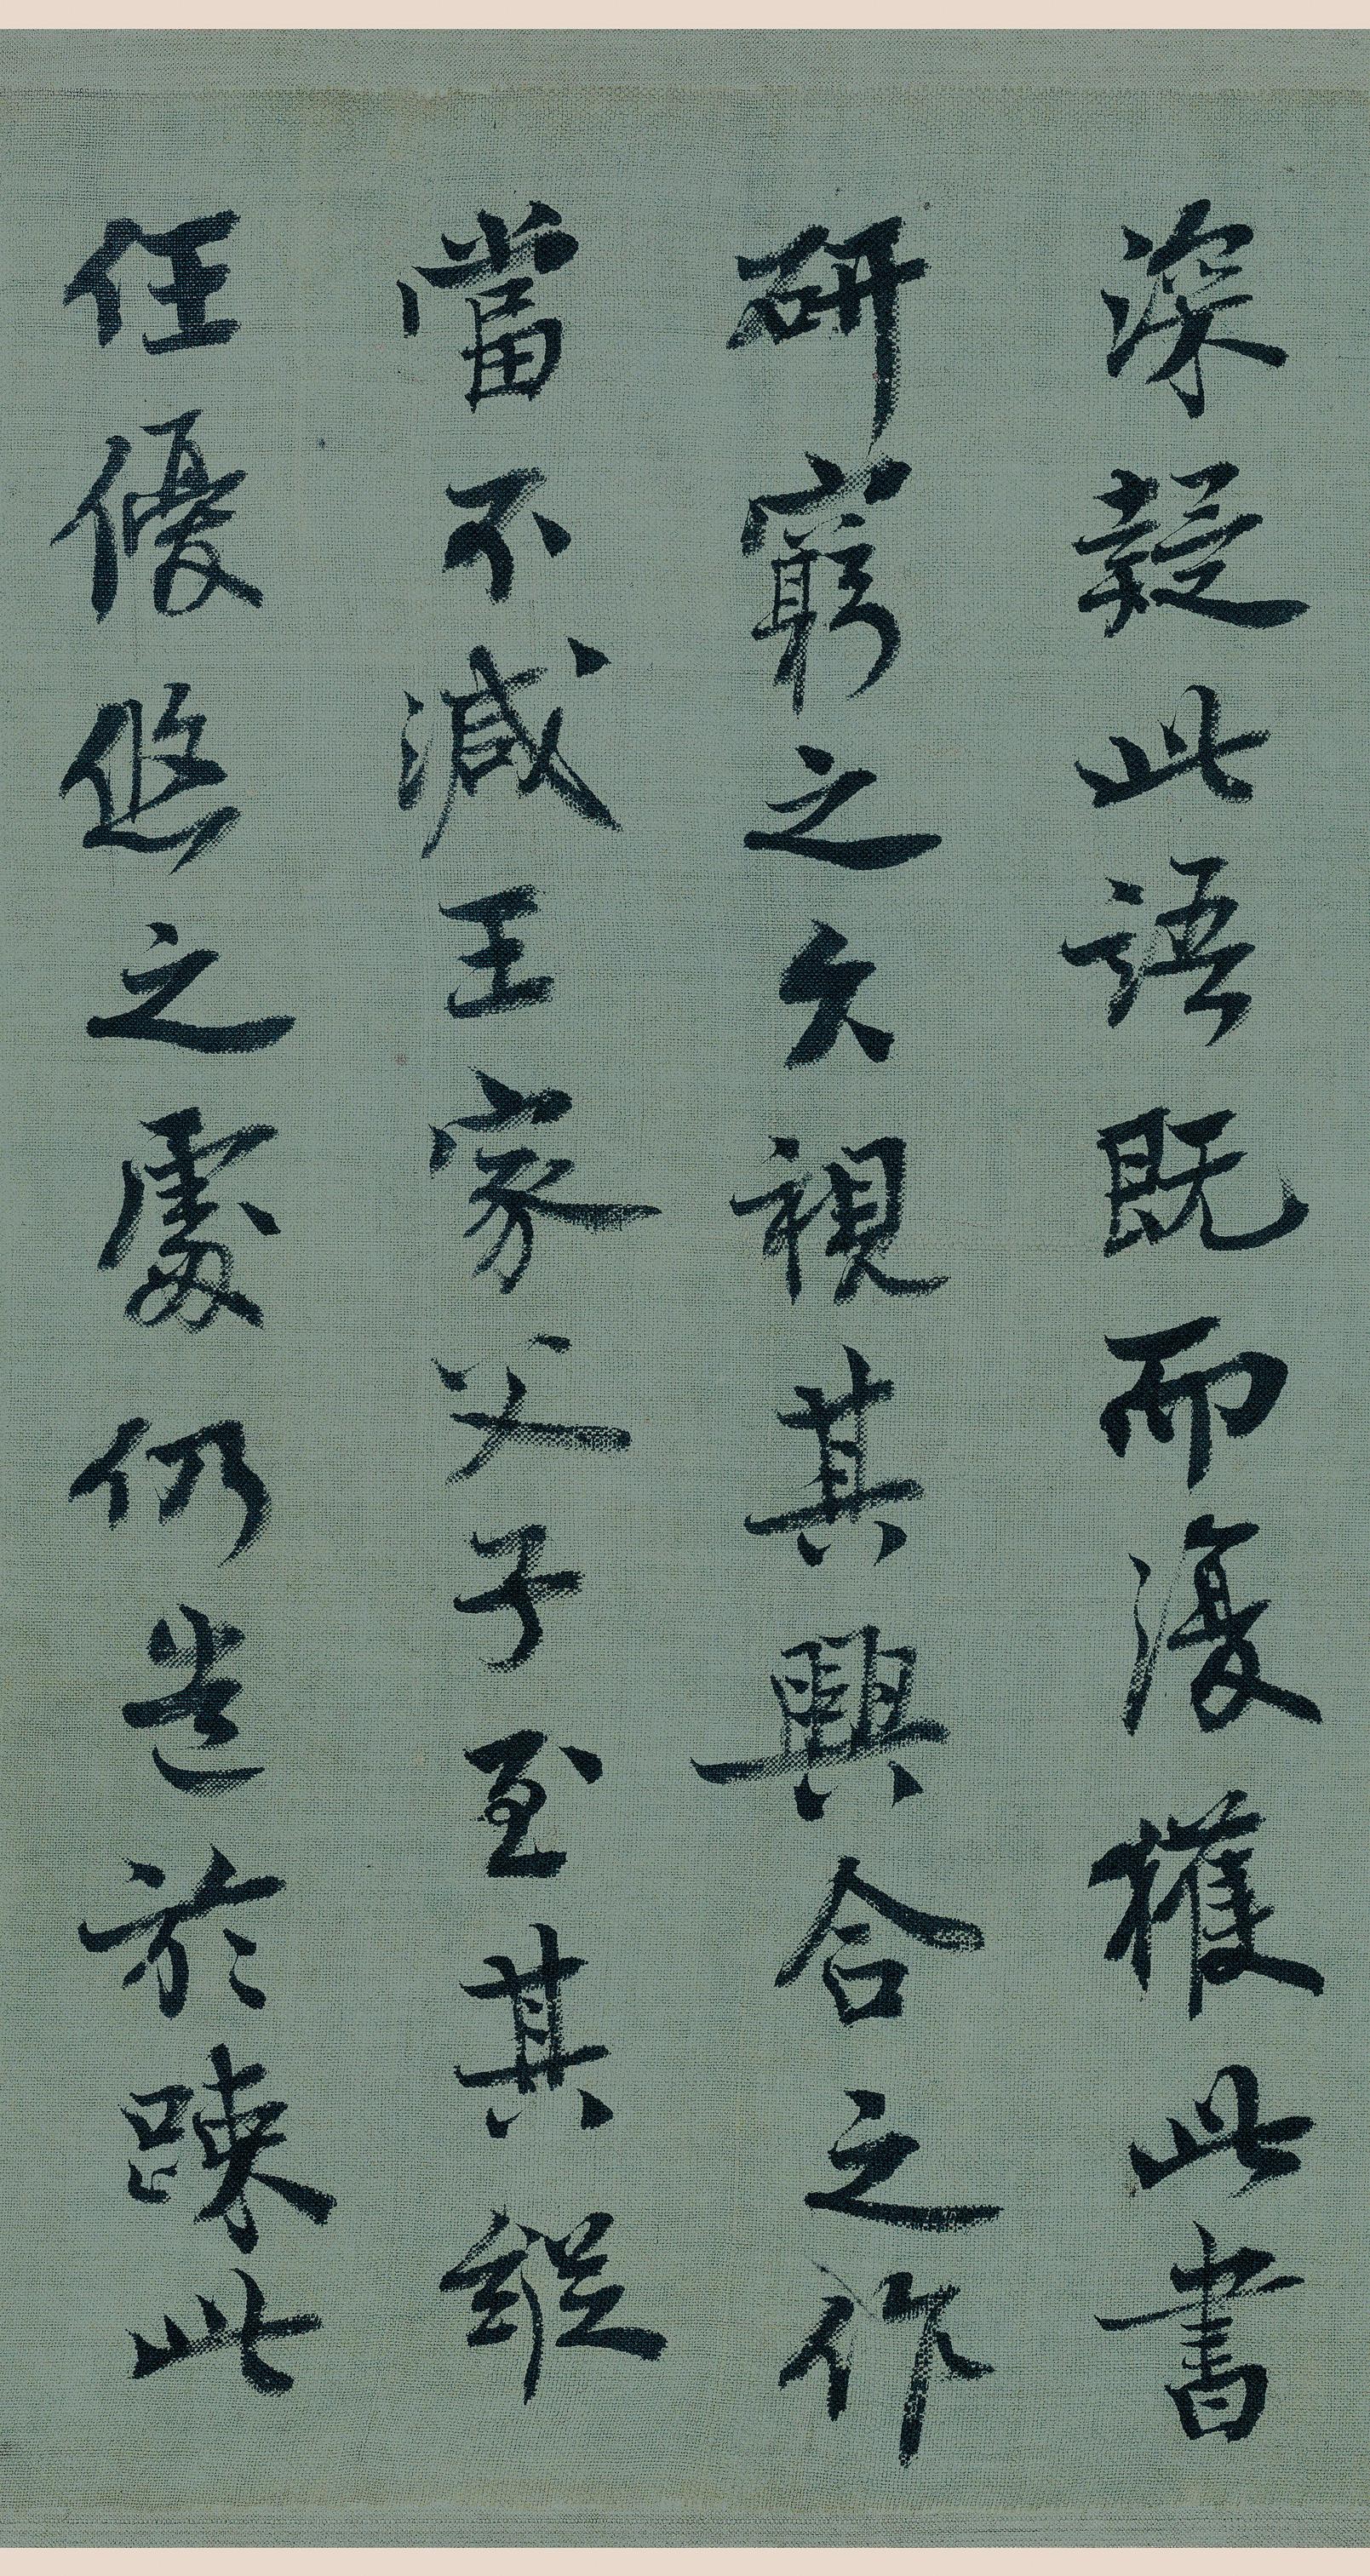 深疑此語既而復獲此書
研窮之久視其興合之作
當不減王家父子至其縱
任優悠之處仍造於踈此